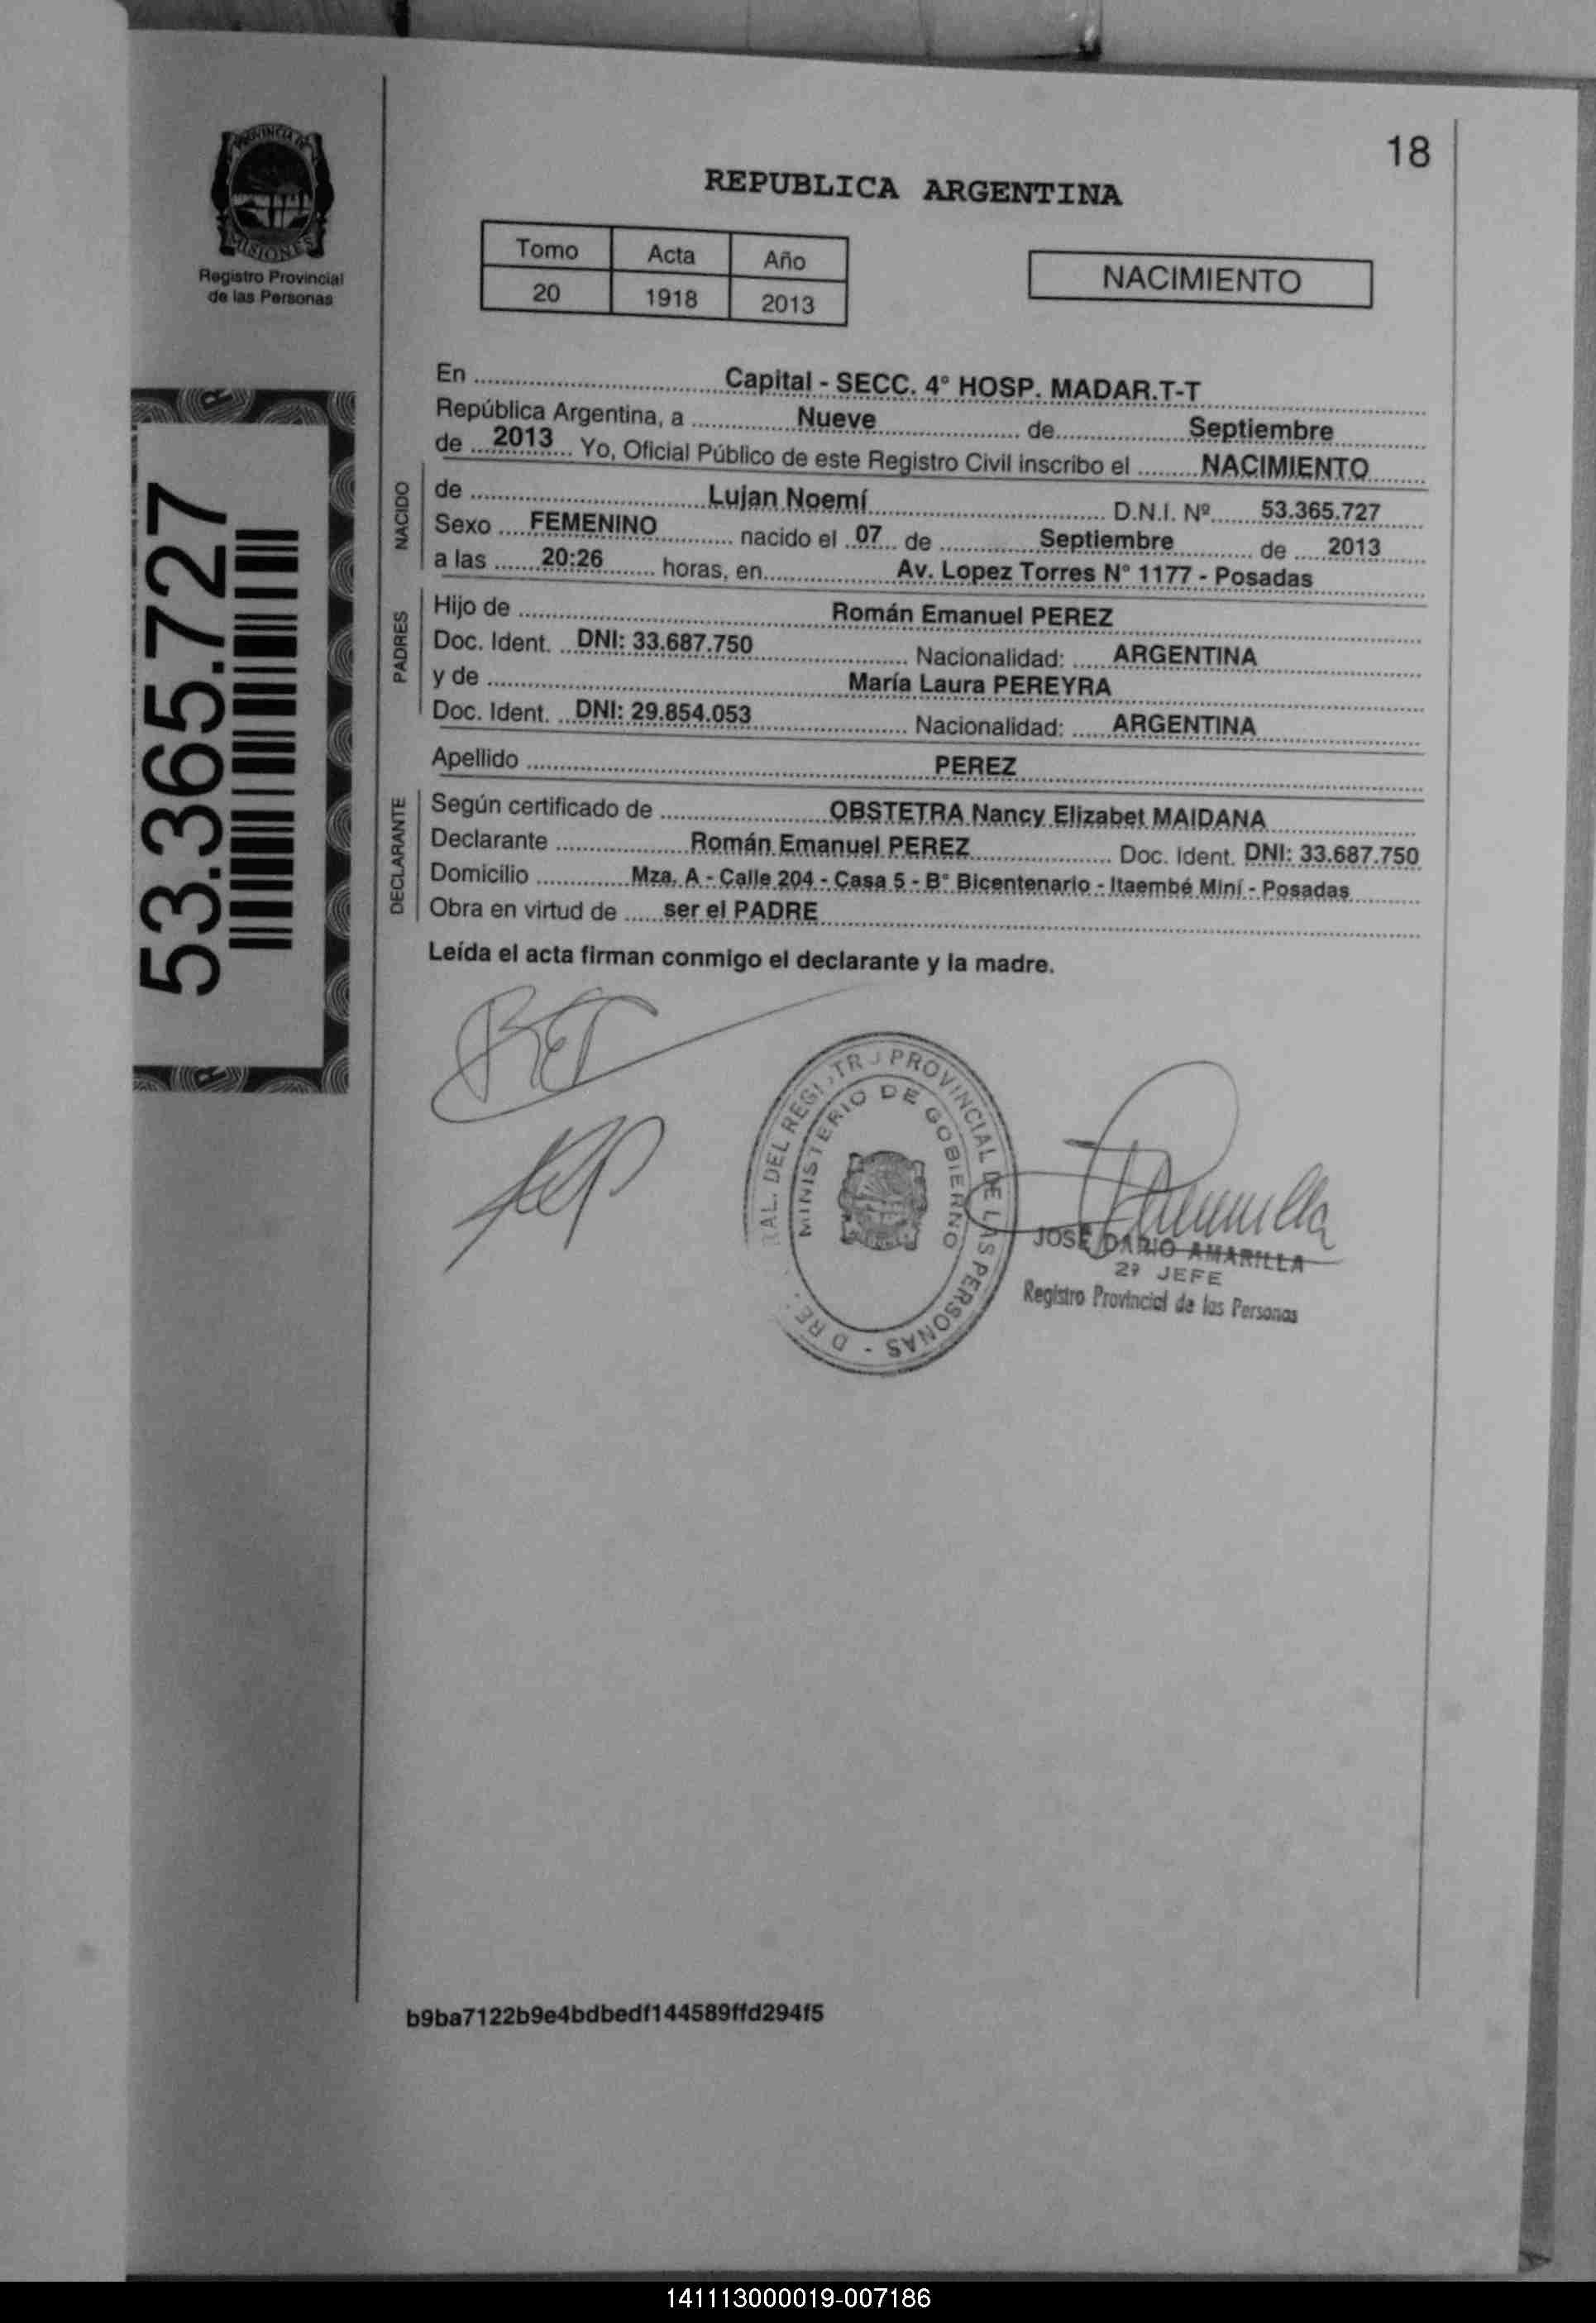 18
PROVINCIA DE
MISIONES
Registro Provincial
de las Personas
REPUBLICA ARGENTINA
Tomo Acta Año
20 1918 2013
NACIMIENTO
53.365.727
En Capital - SECC. 4° HOSP. MADAR.T-T
República Argentina, a Nueve de Septiembre
de 2013 Yo, Oficial Público de este Registro Civil inscribo el NACIMIENTO
NACIDO
de Lujan Noemí D.N.I. Nº 53.365.727
Sexo FEMENINO nacido el 07 de Septiembre de 2013
a las 20:26 horas, en Av. Lopez Torres N° 1177 - Posadas
PADRES
Hijo de Román Emanuel PEREZ
Doc. Ident. DNI: 33.687.750 Nacionalidad: ARGENTINA
y de María Laura PEREYRA
Doc. Ident. DNI: 29.854.053 Nacionalidad: ARGENTINA
Apellido PEREZ
DECLARANTE
Según certificado de OBSTETRA Nancy Elizabet MAIDANA
Declarante Román Emanuel PEREZ Doc. Ident. DNI: 33.687.750
Domicilio Mza. A - Calle 204 - Casa 5 - B° Bicentenario - Itaembé Miní - Posadas
Obra en virtud de ser el PADRE
Leída el acta firman conmigo el declarante y la madre.
DEL REGISTRO PROVINCIAL DE LAS PERSONAS -
MINISTERIO DE GOBIERNO
JOSE DARIO AMARILLA
2º JEFE
Registro Provincial de las Personas
b9ba7122b9e4bdbedf144589ffd294f5
141113000019-007186